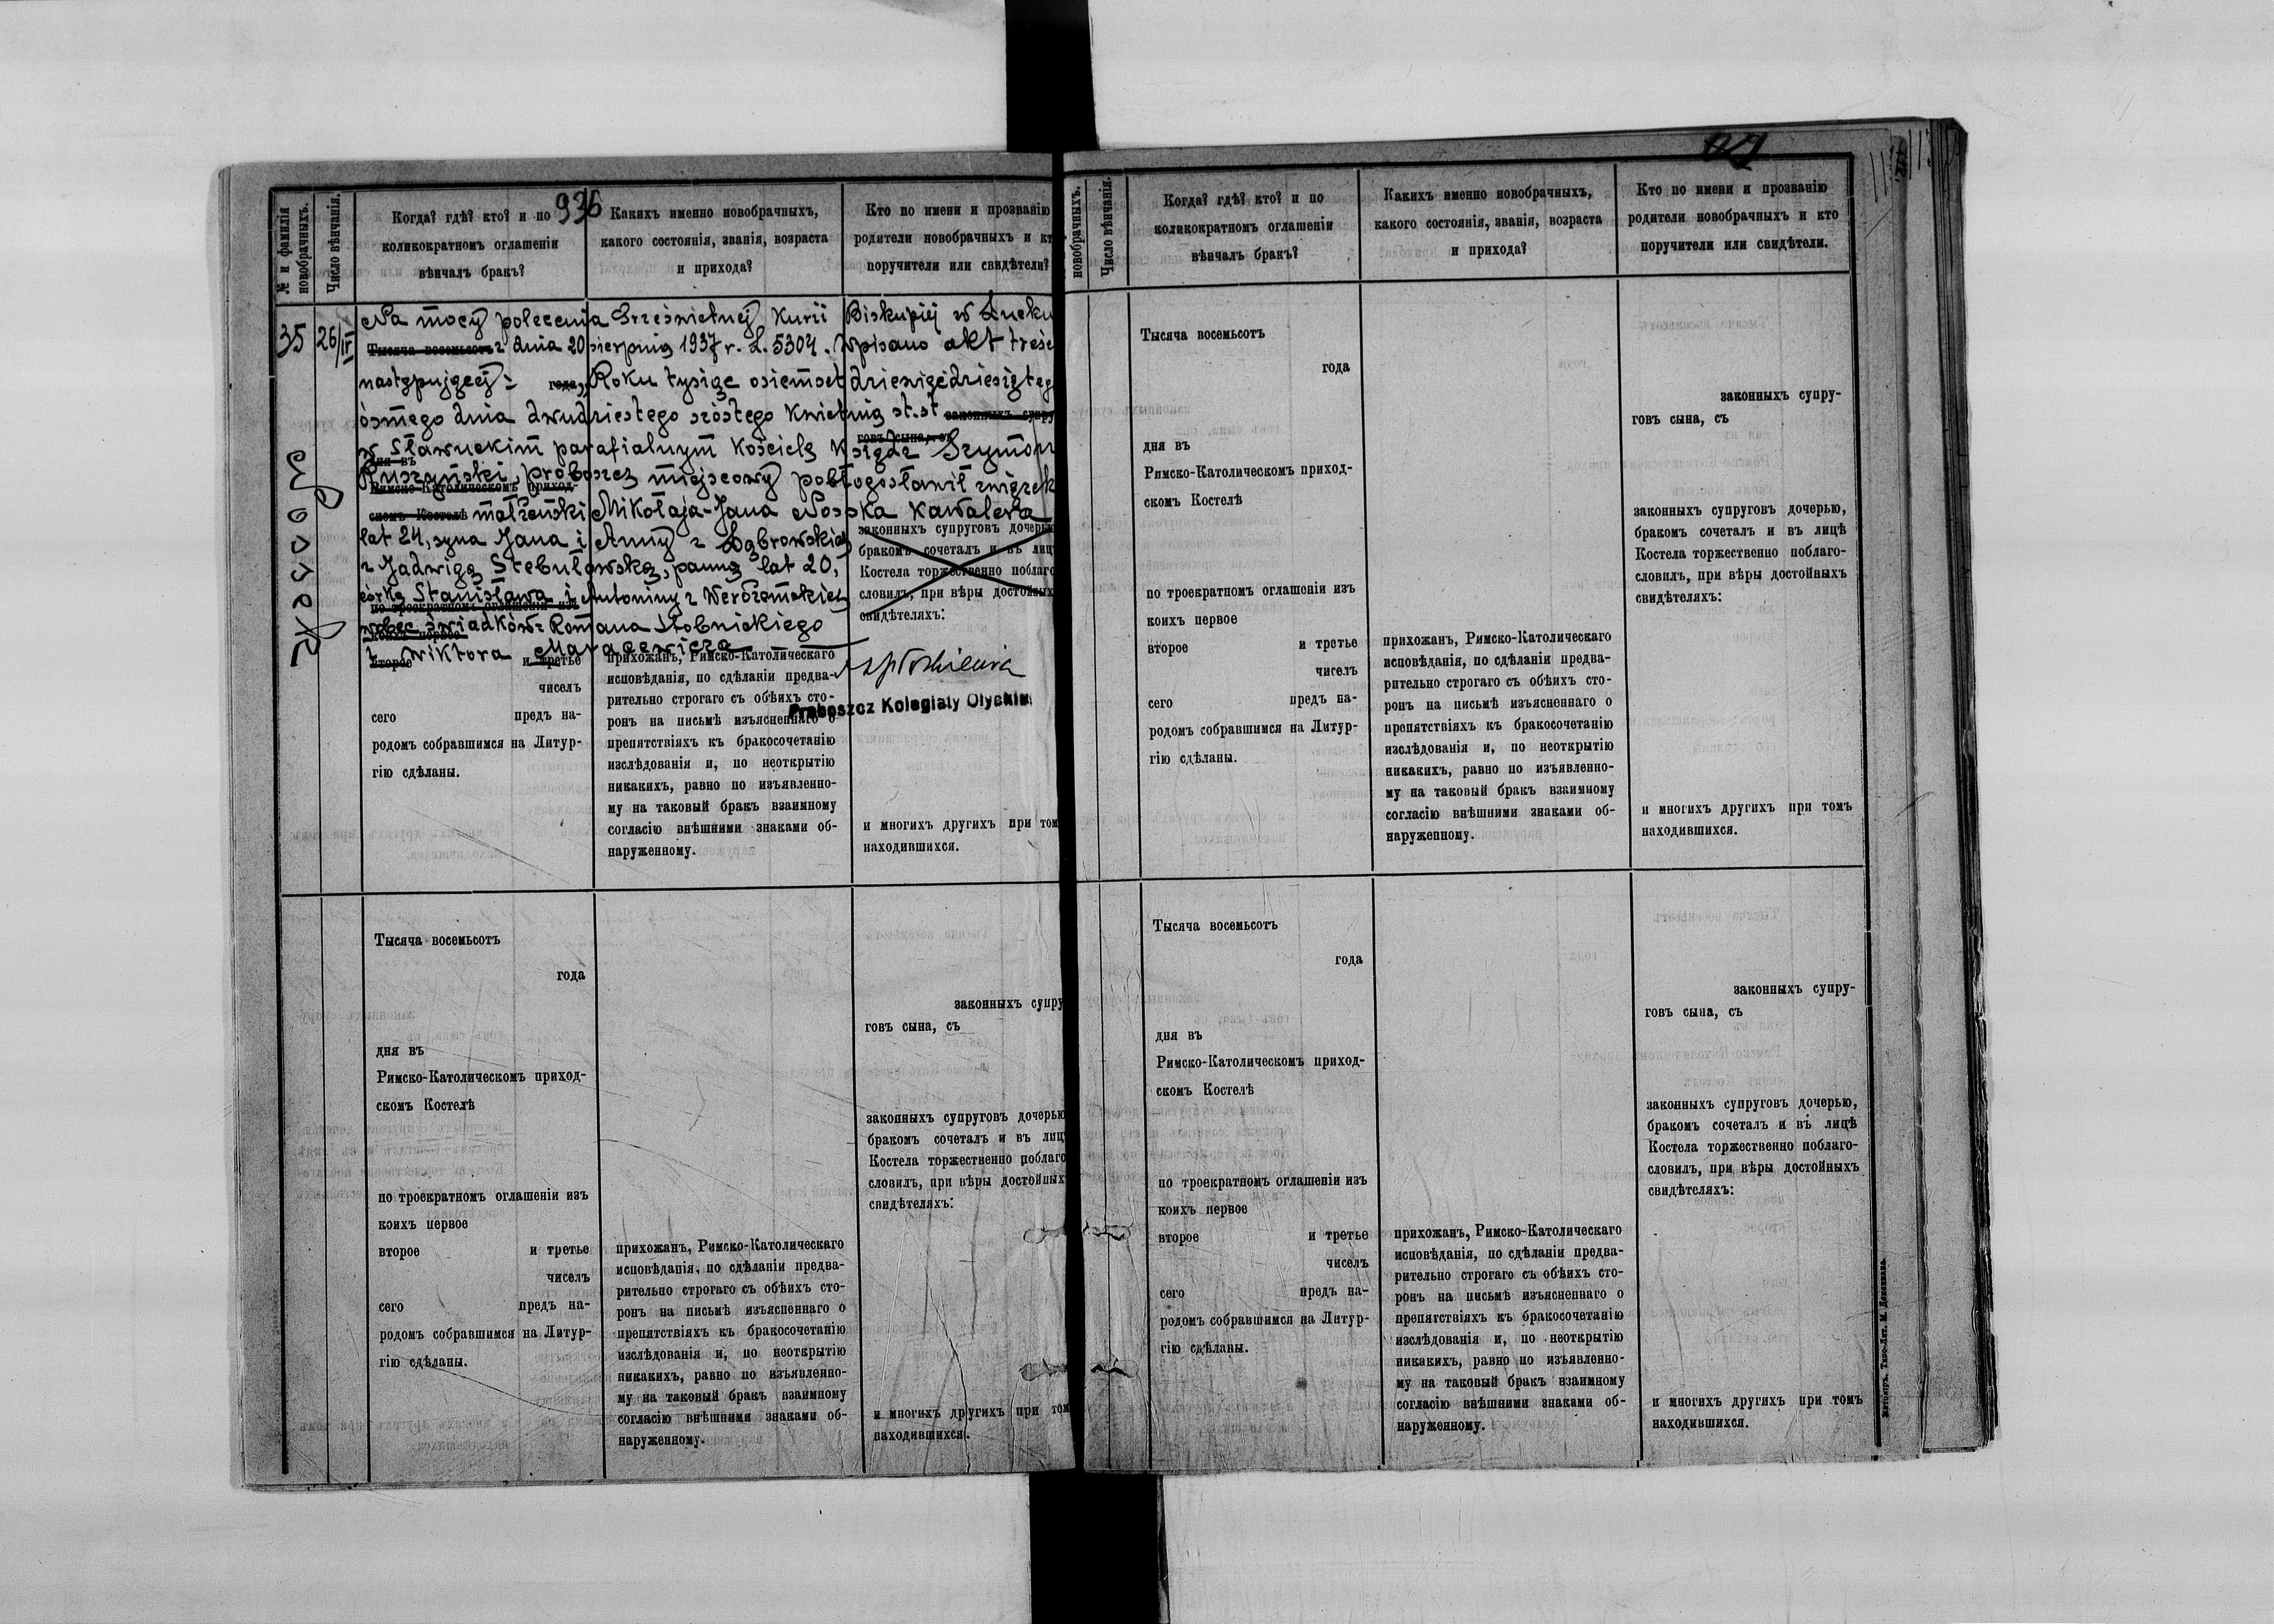 936
№ и фамилія новобрачныхъ.
Число вѣнчанія.
Когда? гдѣ? кто? и по
коликократномъ оглашеніи
вѣнчалъ бракъ?
Какихъ именно новобрачныхъ,
какого состоянія, званія, возраста
и прихода?
Кто по имени и прозванію
родители новобрачныхъ и кт
поручители или свидѣтели?
35
26/IV
Na mocy polecenia Prześwietnej Kurii Biskupiej w Łucku
Тысяча восемьсотъ z dnia 20 sierpnia 1937 r. L. 5304. Wpisano akt treści
następującej: года „Roku tysiąc osiemset dziewięćdziesiąteg
ósmego dnia dwudziestego szóstego Kwietnia st. st законныхъ супру
говъ сына, съ
w Sławuckim parafialnym Kościele Ksiądz Szymon
дня въ
proboszcz miejscowy pobłogosławił związek
Римско-Католическомъ приход-
скомъ Костелѣ małżeński Mikołaja-Jana Noska Kawalera
lat 24, syna Jana i Anny z Dąbrowskich
z Jadwigą Stebułowską, panną lat 20,
córką Stanisława i Antoniny z
по троекратномъ оглашеніи изъ
wobec świadków: Romana Słobnickiego
коихъ первое
i Wiktora
второе и третье
чиселъ
сего предъ на-
родомъ собравшимся на Литур-
гію сдѣланы.
прихожанъ, Римско-Католическаго
исповѣданія, по сдѣланіи предва-
рительно строгаго съ обѣихъ сто-
ронъ на письмѣ изъясненнаго о
препятствіяхъ къ бракосочетанію
изслѣдованія и, по неоткрытію
никакихъ, равно по изъявленно-
му на таковый бракъ взаимному
согласію внѣшними знаками об-
наруженному.
законныхъ супруговъ дочерью
бракомъ сочеталъ и въ лиц
Костела торжественно поблаго
словилъ, при вѣры достойных
свидѣтеляхъ:
Proboszcz Kolegiaty Ołyckiej
и многихъ другихъ при том
находившихся.
Тысяча восемьсотъ
года
дня въ
Римско-Католическомъ приход-
скомъ Костелѣ
по троекратномъ оглашеніи изъ
коихъ первое
второе и третье
чиселъ
сего предъ на-
родомъ собравшимся на Литур-
гію сдѣланы.
прихожанъ, Римско-Католическаго
исповѣданія, по сдѣланіи предва-
рительно строгаго съ обѣихъ сто-
ронъ на письмѣ изъясненнаго о
препятствіяхъ къ бракосочетанію
изслѣдованія и, по неоткрытію
никакихъ, равно по изъявленно-
му на таковый бракъ взаимному
согласію внѣшними знаками об-
наруженному.
законныхъ супру
говъ сына, съ
законныхъ супруговъ дочерью
бракомъ сочеталъ и въ лиц
Костела торжественно поблаго
словилъ, при вѣры достойных
свидѣтеляхъ:
и многихъ другихъ при том
находившихся.
новобрачныхъ.
Число вѣнчанія.
Когда? гдѣ? кто? и по
коликократномъ оглашеніи
вѣнчалъ бракъ?
Какихъ именно новобрачныхъ,
какого состоянія, званія, возраста
и прихода?
Кто по имени и прозванію
родители новобрачныхъ и кто
поручители или свидѣтели.
Тысяча восемьсотъ
года
дня въ
Римско-Католическомъ приход-
скомъ Костелѣ
по троекратномъ оглашеніи изъ
коихъ первое
второе и третье
чиселъ
сего предъ на-
родомъ собравшимся на Литур-
гію сдѣланы.
прихожанъ, Римско-Католическаго
исповѣданія, по сдѣланіи предва-
рительно строгаго съ обѣихъ сто-
ронъ на письмѣ изъясненнаго о
препятствіяхъ къ бракосочетанію
изслѣдованія и, по неоткрытію
никакихъ, равно по изъявленно-
му на таковый бракъ взаимному
согласію внѣшними знаками об-
наруженному.
законныхъ супру-
говъ сына, съ
законныхъ супруговъ дочерью,
бракомъ сочеталъ и въ лицѣ
Костела торжественно поблаго-
словилъ, при вѣры достойныхъ
свидѣтеляхъ:
и многихъ другихъ при томъ
находившихся.
Тысяча восемьсотъ
года
дня въ
Римско-Католическомъ приход-
скомъ Костелѣ
по троекратномъ оглашеніи изъ
коихъ первое
второе и третье
чиселъ
сего предъ на-
родомъ собравшимся на Литур-
гію сдѣланы.
прихожанъ, Римско-Католическаго
исповѣданія, по сдѣланіи предва-
рительно строгаго съ обѣихъ сто-
ронъ на письмѣ изъясненнаго о
препятствіяхъ къ бракосочетанію
изслѣдованія и, по неоткрытію
никакихъ, равно по изъявленно-
му на таковый бракъ взаимному
согласію внѣшними знаками об-
наруженному.
законныхъ супру-
говъ сына, съ
законныхъ супруговъ дочерью,
бракомъ сочеталъ и въ лицѣ
Костела торжественно поблаго-
словилъ, при вѣры достойныхъ
свидѣтеляхъ:
и многихъ другихъ при томъ
находившихся.
Житоміръ, Типо-Лит. М. Дененмана.